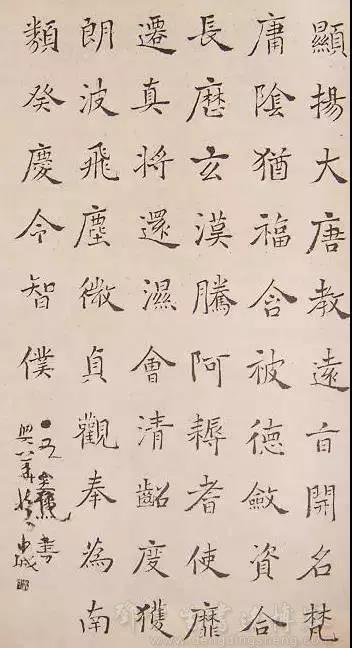 顯揚大唐教遠百開名梵
庸陰猶福合被德斂資合
長歷玄漠騰阿耨者使靡
遷真将還濕會清齠度獲
朗波飛塵微貞觀奉為南
類癸慶令智僕
書
www.dengdingsheng.com